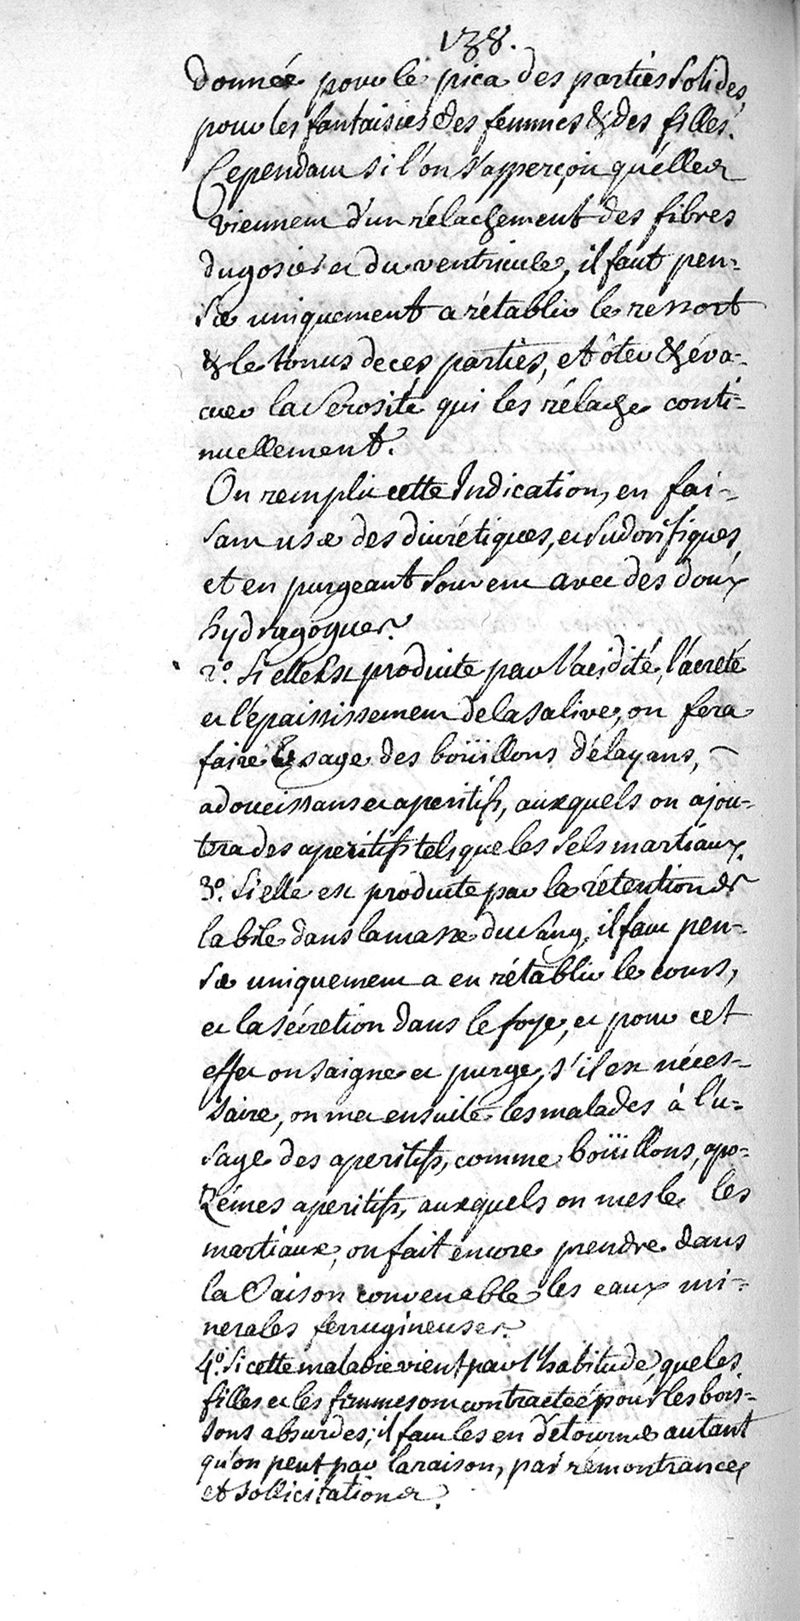 138.
donnée pour le pica des parties solides,
pour les fantaisies des femmes & des filles.
Cependant si l'on s'apperçoit qu'elles
viennent d'un rélachement des fibres
du gosier et du ventricule, il faut pen-
ser uniquement a rétablir le ressort
& le tonus de ces parties, et ôter & éva-
cuer la serosité qui les rélache conti-
nuellement.
On remplit cette Indication, en fai-
sant user des diurétiques, et sudorifiques,
et en purgeant souvent avec des doux
hydragogues.
2º. Si elle est produite par l'acidité, l'acreté
et l'épaississement de la salive, on fera
faire usage des boüillons délayans,
adoucissans et aperitifs, auxquels on ajou-
tera des aperitifs tels que les sels martiaux.
3º. Si elle est produite par la rétention de
la bile dans la masse du sang, il faut pen-
ser uniquement a en rétablir le cours,
et la sécretion dans le foye, et pour cet
effet on saigne et purge, s'il est néces-
saire, on met ensuite les malades à l'u-
sage des aperitifs, comme boüillons, apo-
zémes aperitifs, auxquels on mesle les
martiaux, on fait encore prendre dans
la saison convenable les eaux mi-
nerales ferrugineuses.
4º. Si cette maladie vient par l'habitude que les
filles et les femmes ont contractée pour les bois-
sons absurdes; il faut les en détourner autant
qu'on peut par la raison, par rémontrances
et sollicitations.